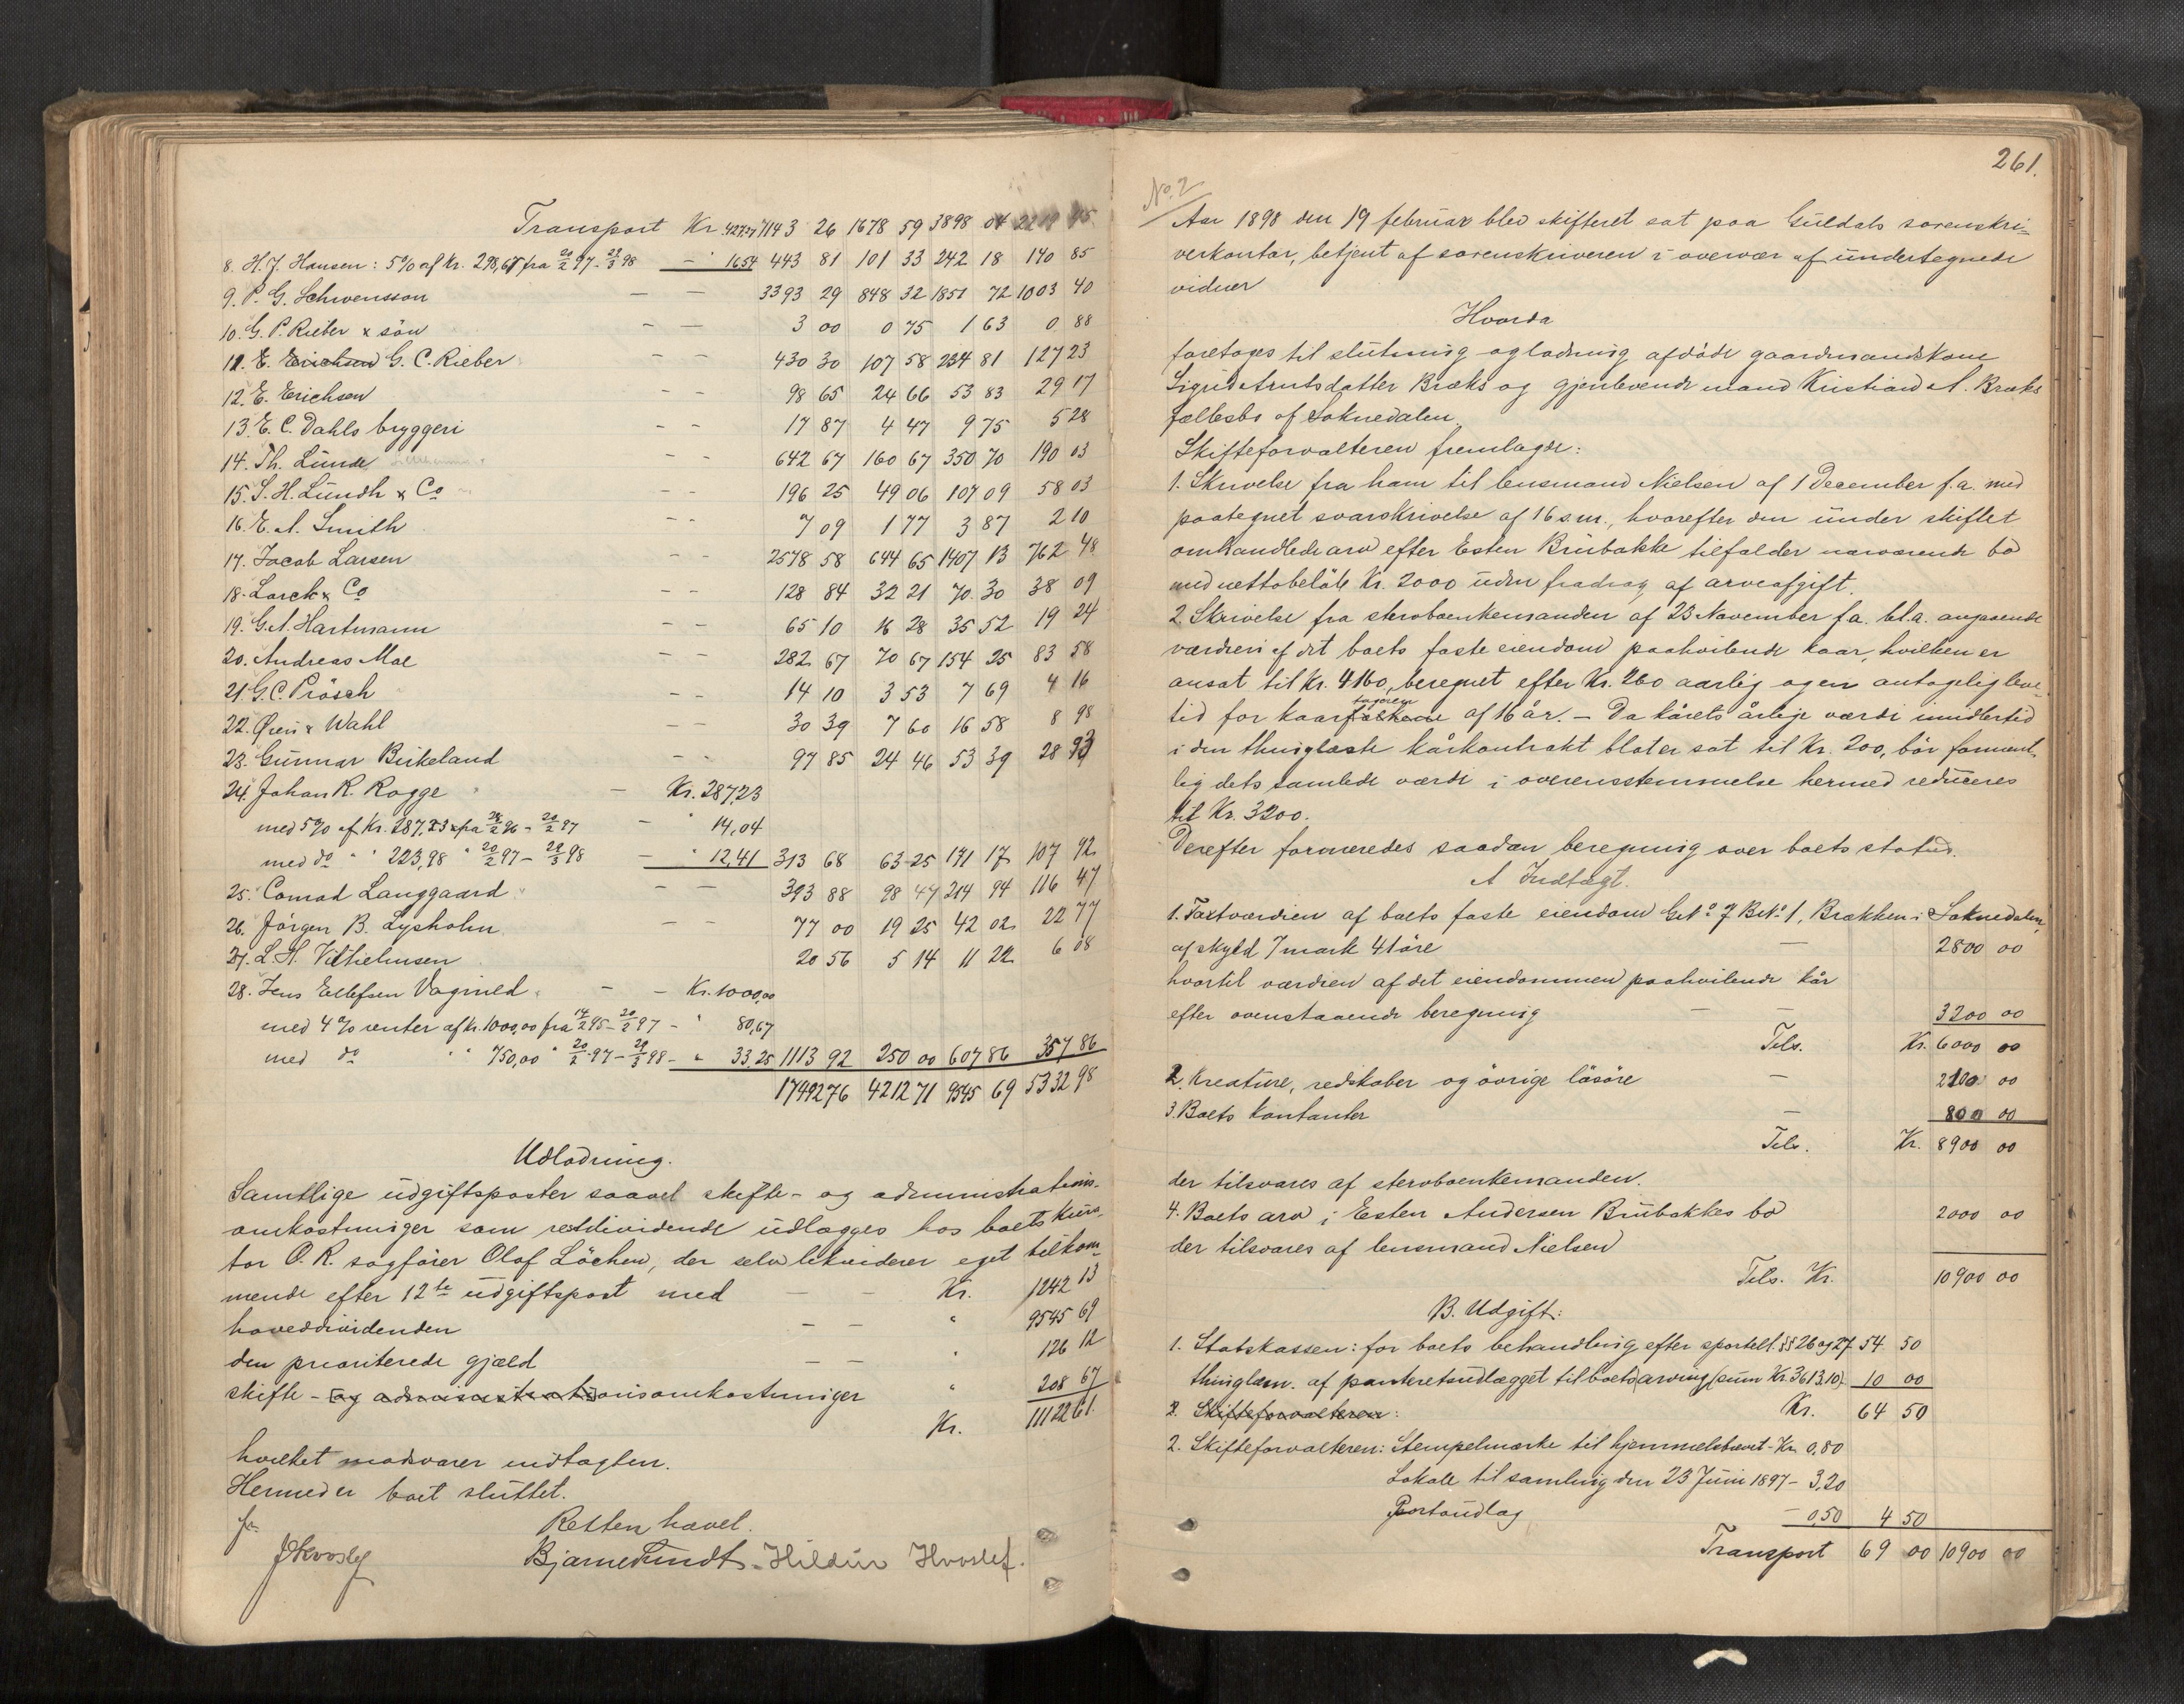 Transport Kr. 427,27 7143 26 1678 59 3898 04 2219 45
8. H. J. Hansen: 5% af Kr. 298,67 fra 20/2 97 - 29/3 98 — " 16 54 443 81 101 33 242 18 140 85
9. P. G. Schwensson — — 3393 29 848 32 1851 72 1003 40
10. G. P. Rieber & sön — — 3 00 0 75 1 63 0 88
11. E. Erichsen G. C. Rieber — — 430 30 107 58 234 81 127 23
12. E. Erichsen — 98 65 24 66 53 83 29 17
13. E. C. Dahls bryggeri — — 17 87 4 47 9 75 5 28
14. Th. Lunde — — 642 67 160 67 350 70 190 03
15. S. H. Lundh & Co — — 196 25 49 06 107 09 58 03
16. E. A. Smith — — 7 09 1 77 3 87 2 10
17. Jacob Larsen — — 2578 58 644 65 1407 13 762 48
18. Lorck & Co — — 128 84 32 21 70 30 38 09
19. G. A. Hartmann — — 65 10 16 28 35 52 19 24
20. Andreas Moe — — 282 67 70 67 154 25 83 58
21. G. C. Prösch — — 14 10 3 53 7 69 4 16
22. Øien & Wahl — — 30 39 7 60 16 58 8 98
23. Gunnar Birkeland — — 97 85 24 46 53 39 28 93
24. Johan R. Rogge — Kr. 287,23
med 5% af Kr. 287,23 fra 28/2 96 - 20/2 97 — " 14,04
med do " " 223,98 " 20/2 97 - 29/3 98 — " 12,41 313 68 63 25 171 17 107 92
25. Conrad Langgaard — — 393 88 98 47 214 94 116 47
26. Jörgen B. Lysholm — — 77 00 19 25 42 02 22 77
27. L. H. Vilhelmsen 20 56 5 14 11 22 6 08
28. Jens Ellefsen Vagnild — — Kr. 1000,00
med 4% renter af Kr. 1000,00 fra 14/2 95 - 20/2 97 — " 80,67
med do " " 750,00 " 20/2 97 - 29/3 98 — " 33,25 1113 92 250 00 607 86 357 86
17492 76 4212 71 9545 69 5332 98
Udlodning.
Samtlige udgiftsposter saavel skifte- og administrations-
omkostninger som restdividende udlægges hos boets kura-
tor O. R. sagförer Olaf Löchen, der selv likviderer eget tilkom-
mende efter 12te udgiftspost med — — Kr. 1242 13
hoveddividenden — — " 9545 69
den prioriterede gjæld — — " 126 12
skifte- og administrationsomkostninger " 208 67
Kr. 11122 61
hvilket modsvarer indtægten.
Hermed er boet sluttet.
Retten hævet.
JHvoslef Bjarne Tundt. Hildur Hvoslef.
261.
No. 2
Aar 1898 den 19 februar blev skifteret sat paa Guldals sorenskri-
verkontor, betjent af sorenskriveren i overvær af undertegnede
vidner
Hvorda
foretoges til slutning og lodning afdöde gaardmandskone
Sigrid Arntsdatter Bræks og gjenlevende mand Kristian A. Bræks
fællesbo af Soknedalen.
Skifteforvalteren fremlagde:
1. Skrivelse fra ham til lensmand Nielsen af 1 December f.a. med
paategnet svarskrivelse af 16 s.m., hvorefter den under skiftet
omhandlede arv efter Esten Brubakke tilfalder nærværende bo
med nettobelöb Kr. 2000 uden fradrag af arveafgift.
2. Skrivelse fra stervboenkemanden af 23 November f.a. bl.a. angaaende
værdien af det boets faste eiendom paahvilende kaar, hvilken er
ansat til Kr. 4160, beregnet efter Kr. 260 aarlig og en antagelig leve-
tid for kaarfolkene tagerne af 16 år. – Da kårets årlige værdi imidlertid
i den thinglæste kårkontrakt blot er sat til Kr. 200, bör forment-
lig dets samlede værdi i overensstemmelse hermed reduceres
til Kr. 3200.
Derefter formeredes saadan beregning over boets status.
A Indtægt.
1. Taxtværdien af boets faste eiendom Gno. 7 Bno. 1, Brækken i Soknedalen,
af skyld 7 mark 41 öre — 2800 00
hvortil værdien af det eiendommen paahvilende kår
efter ovenstaaende beregning — — 3200 00
Tils. Kr. 6000 00
2. Kreature, redskaber og övrige lösöre — 2100 00
3. Boets kontanter — 800 00
Tils. Kr. 8900 00
der tilsvares af stervboenkemanden.
4. Boets arv i Esten Andersen Brubakkes bo 2000 00
der tilsvares af lensmand Nielsen
Tils. Kr. 10900 00
B. Udgift:
1. Statskassen: for boets behandling efter sportell. §§ 26 og 27 54 50
thinglæsn. af panteretsudlægget til boets arving (sum Kr. 3613,10) 10 00
2. Skifteforvalteren: Kr. 64 50
2. Skifteforvalteren: Stempelmærke til hjemmelsbrevet - Kr. 0,80
Lokale til samling den 23 Juni 1897 - 3,20
Portoudlæg — 0,50 4 50
Transport 69 00 10900 00